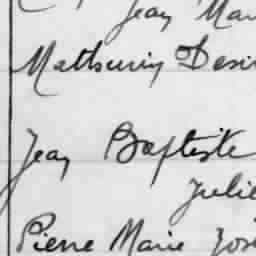 Jean Mar
Mathurin Desir
Jean Baptiste
Julie
Pierre Marie Jos